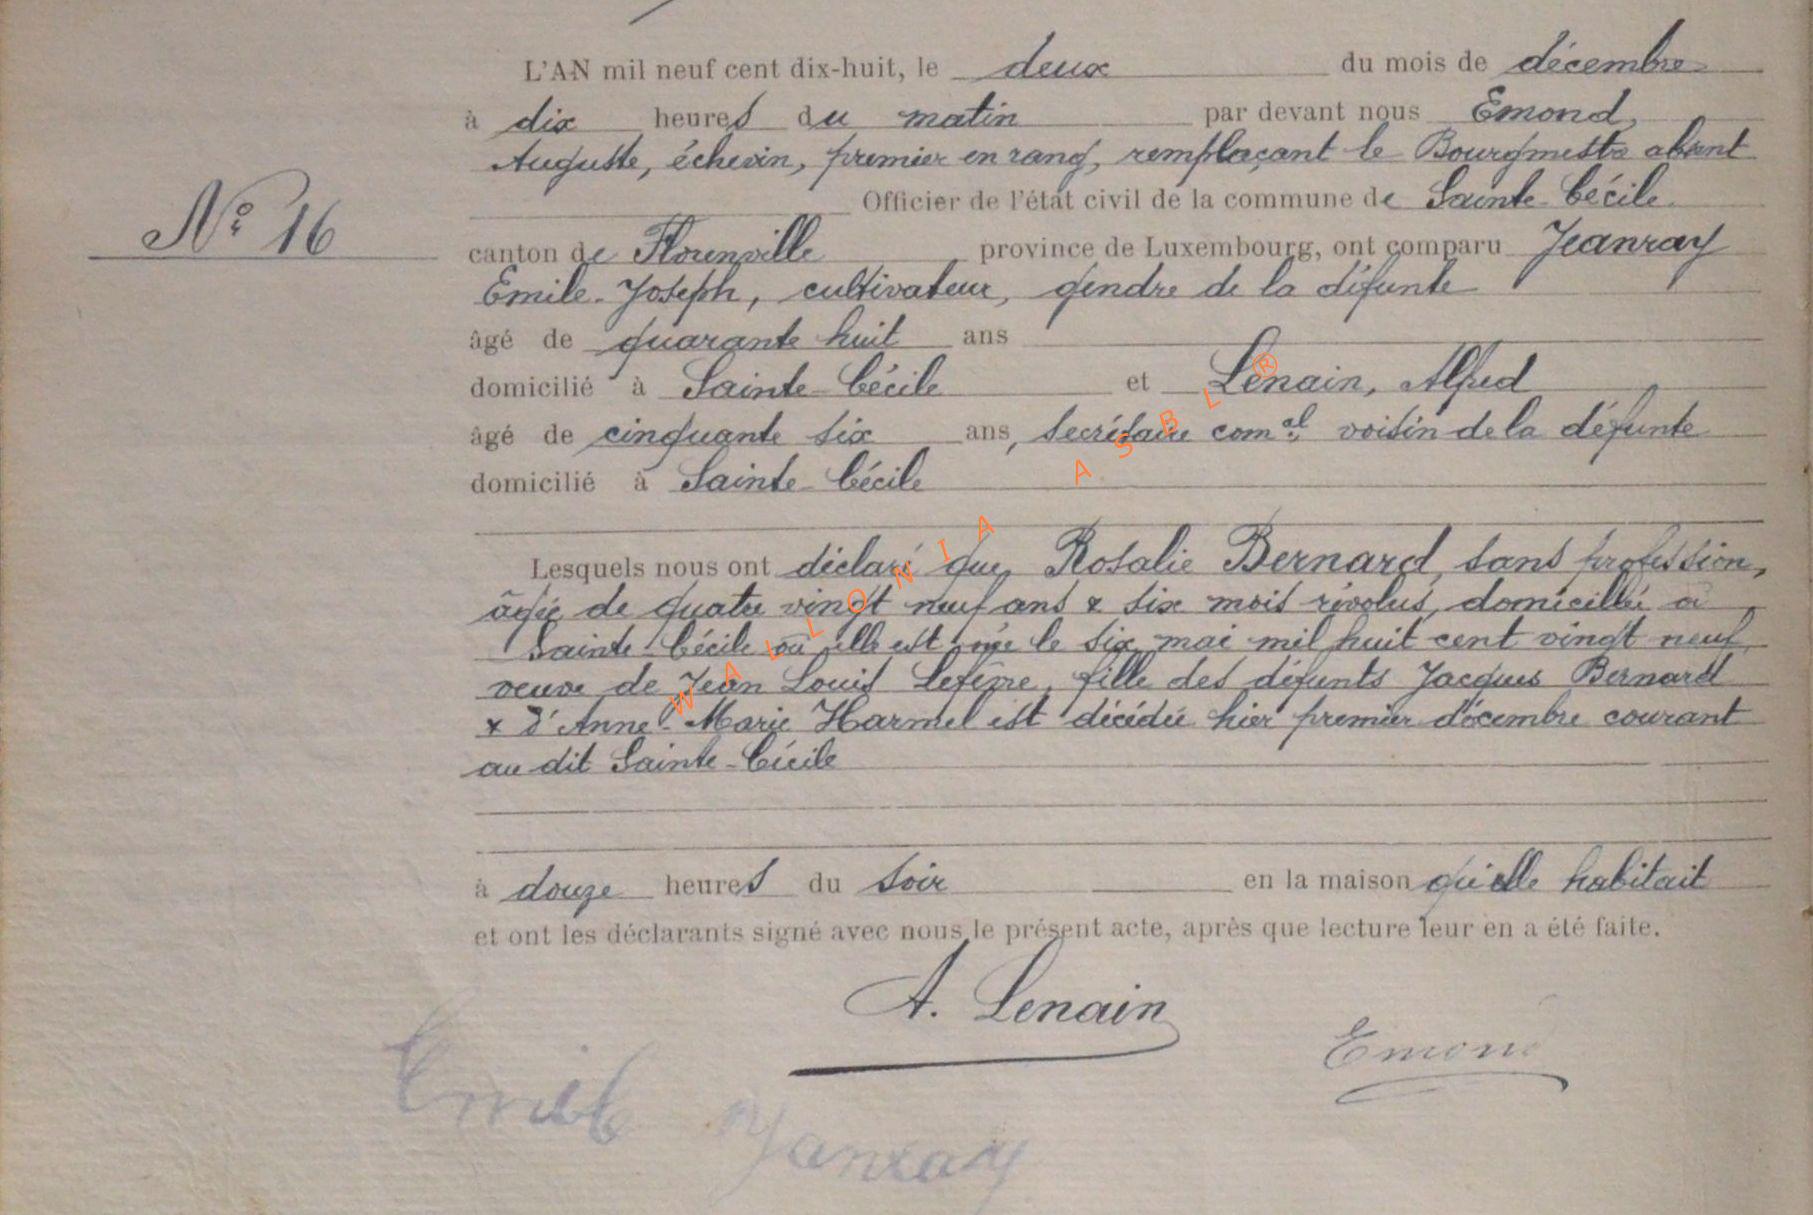 L'AN mil neuf cent dix-huit, le deux du mois de décembre
à dix heures du matin par devant nous Emond,
Auguste, échevin, premier en rang, remplaçant le Bourgmestre absent
Officier de l'état civil de la commune de Sainte-Cécile
N° 16
canton de Florenville province de Luxembourg, ont comparu Jeanray
Emile-Joseph, cultivateur, gendre de la défunte
âgé de quarante huit ans
domicilié à Sainte-Cécile et Lenain, Alfred
âgé de cinquante six ans, secrétaire com.al voisin de la défunte
domicilié à Sainte-Cécile
WALLONIA ASBL ®
Lesquels nous ont déclaré que Rosalie Bernard, sans profession,
âgée de quatre vingt neuf ans & six mois révolus, domiciliée à
Sainte-Cécile où elle est née le six mai mil huit cent vingt neuf,
veuve de Jean Louis Lefèvre, fille des défunts Jacques Bernard
& d'Anne-Marie Harmel est décédée hier premier décembre courant
au dit Sainte-Cécile
à douze heures du soir en la maison qu'elle habitait
et ont les déclarants signé avec nous le présent acte, après que lecture leur en a été faite.
A. Lenain
Emond
Emile Janray